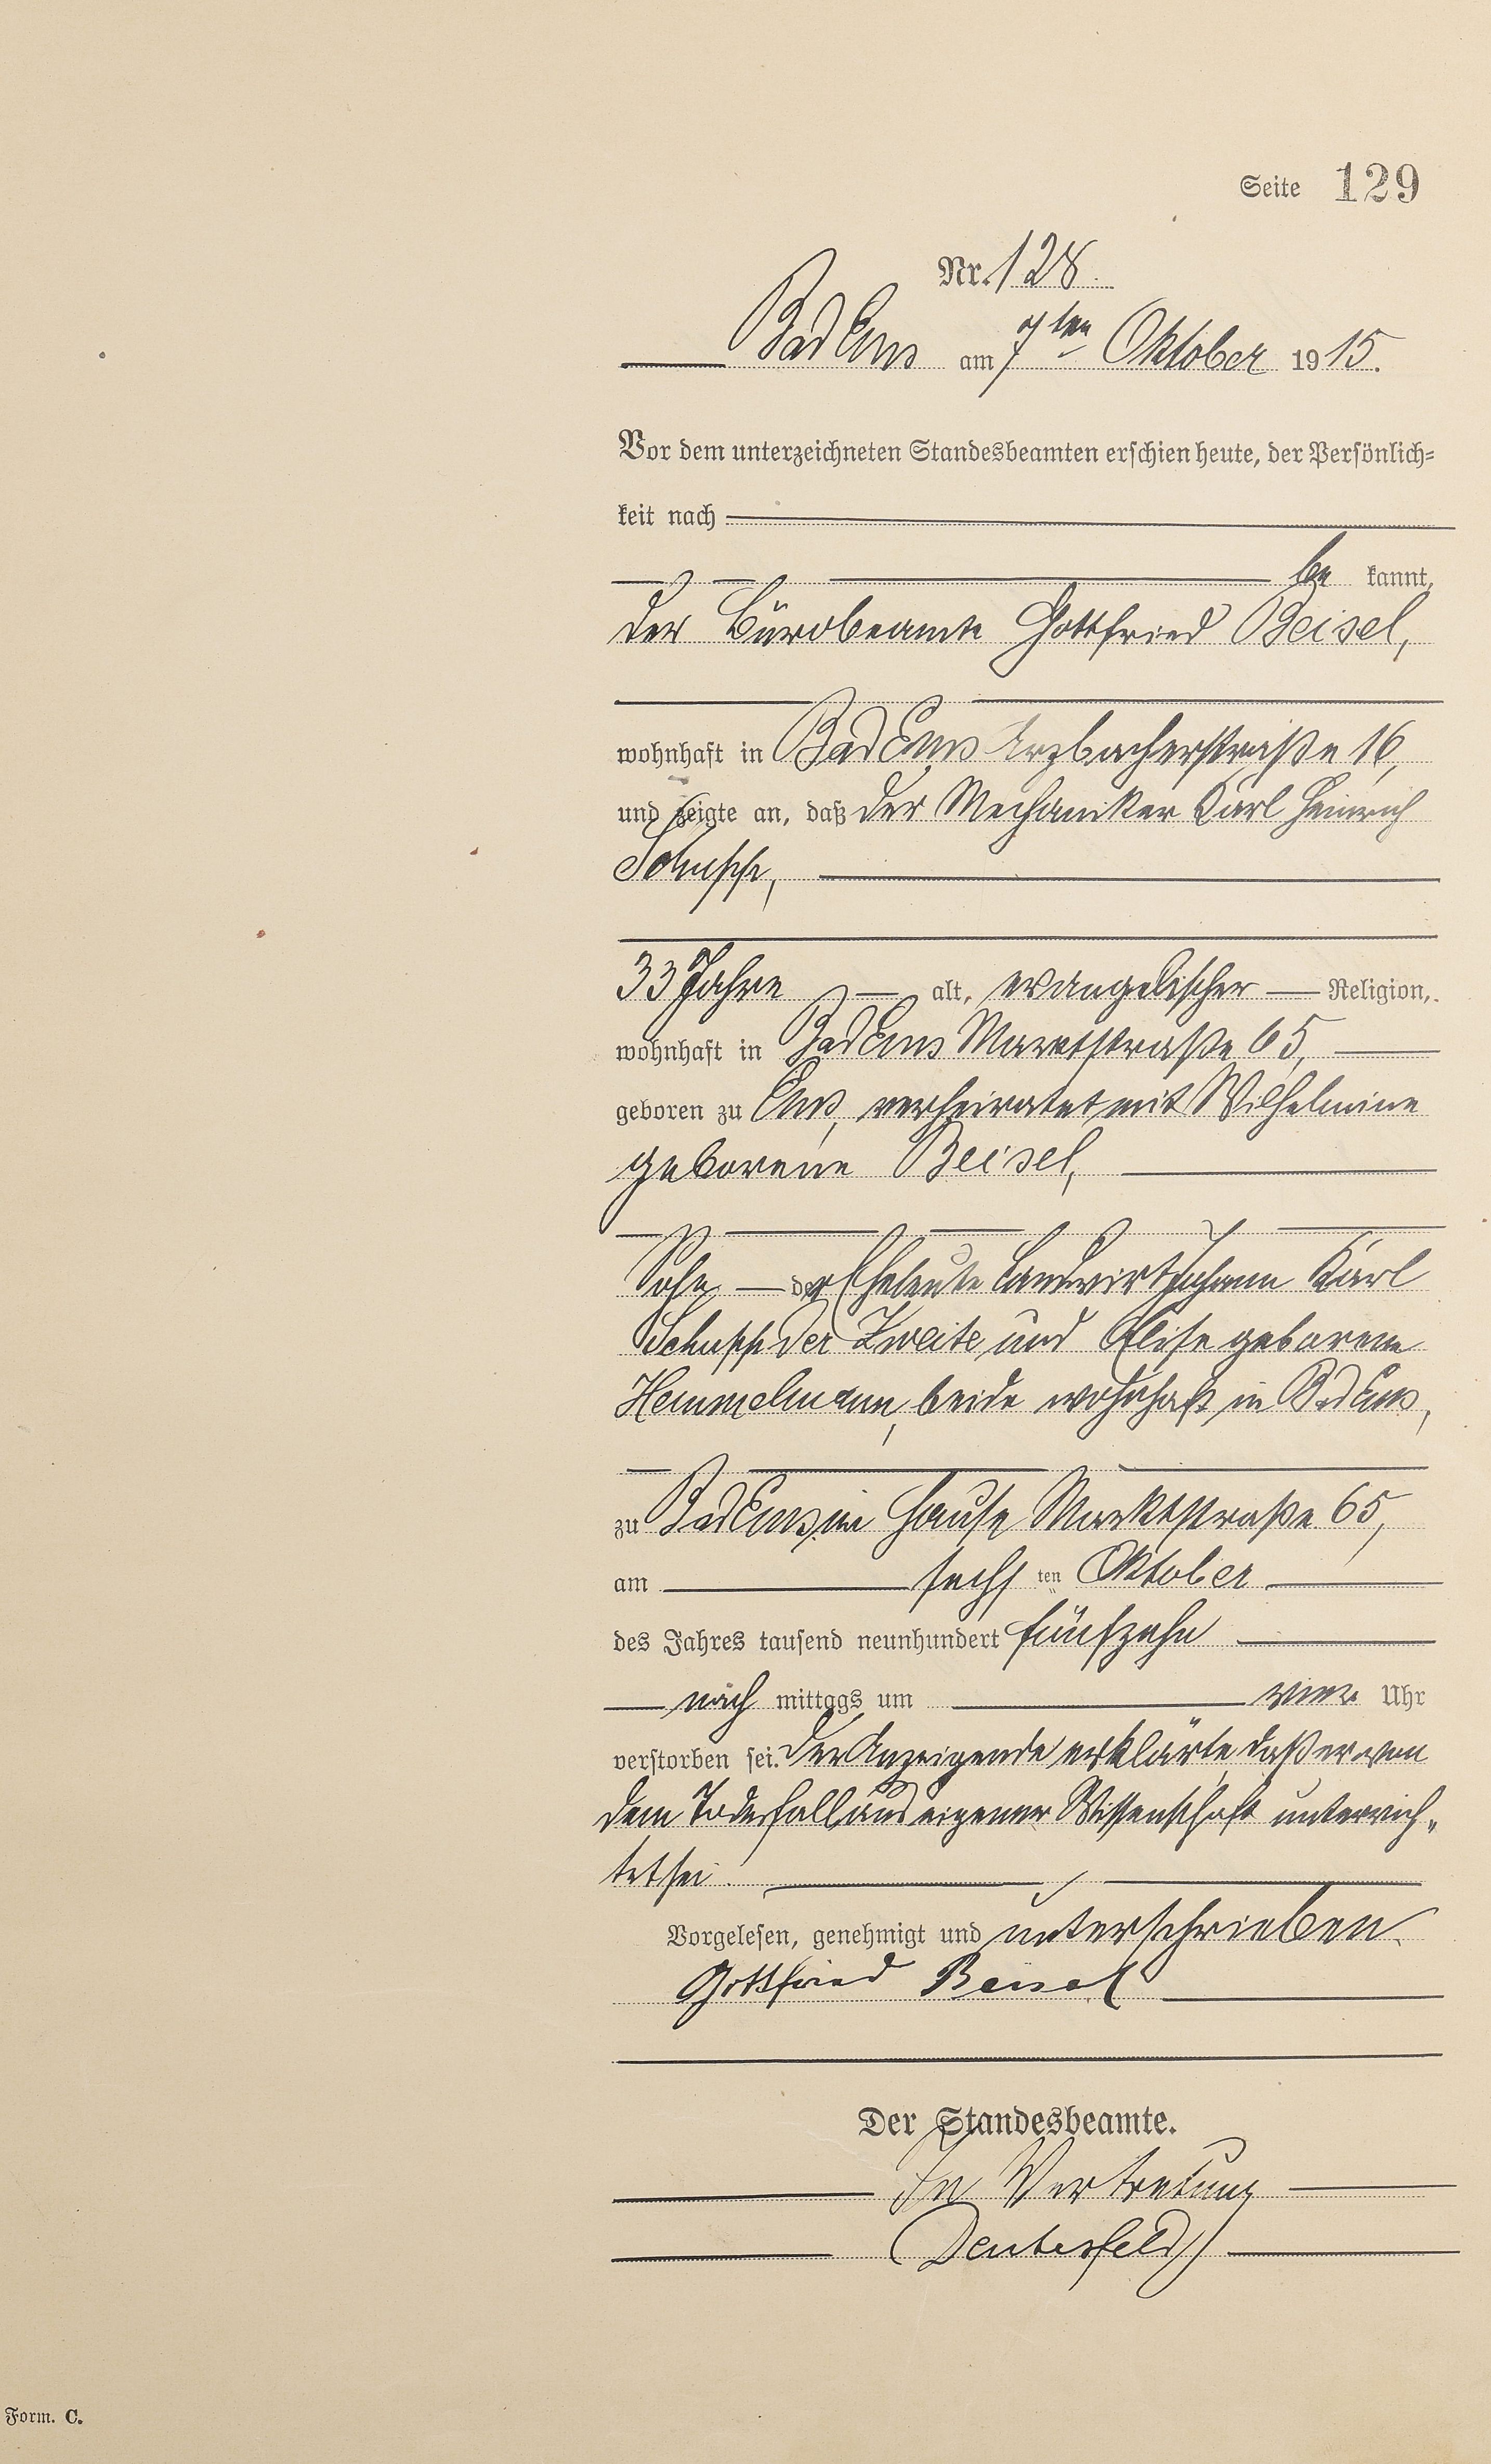 Seite 129
Nr. 128.
Bad Ems am 7ten Oktober 1915.
Vor dem unterzeichneten Standesbeamten erschien heute, der Persönlich=
keit nach
be kannt,
der Bürobeamte Gottfried Beisel,
wohnhaft in Bad Ems Arzbacherstraße 16,
und zeigte an, daß der Mechaniker Karl Heinrich
Schupp,
33 Jahre alt, evangelischer Religion,
wohnhaft in Bad Ems Marktstraße 65,
geboren zu Ems, verheiratet mit Wilhelmine
geborene Beisel,
Sohn der Eheleute Landwirt Johann Karl
Schupp der Zweite und Elise geborene
Hemmelmann, beide wohnhaft in Bad Ems,
zu Bad Ems, im Hause Marktstraße 65,
am sechs ten Oktober
des Jahres tausend neunhundert fünfzehn
nach mittags um vier Uhr
verstorben sei. Der Anzeigende erklärte, daß er von
dem Todesfall aus eigener Wissenschaft unterrich„
tet sei.
Vorgelesen, genehmigt und unterschrieben.
Gottfried Beisel
Der Standesbeamte.
In Vertretung
Form. C.